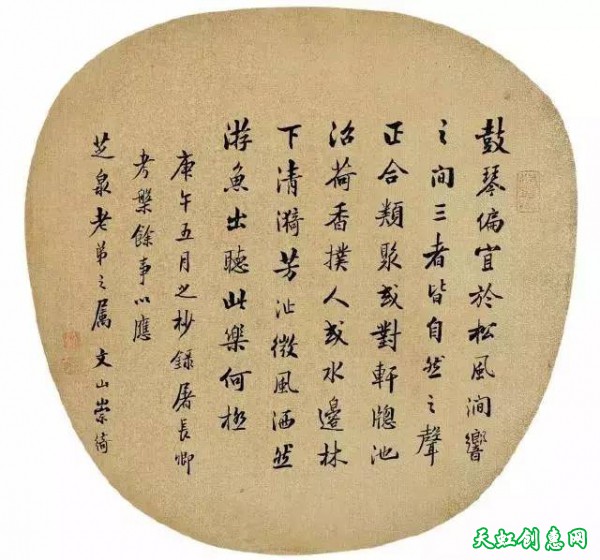 鼓琴偏宜於松風澗響
之間三者皆自然之聲
正合類聚或對軒牕池
沼荷香撲人或水邊林
下清漪芳沚微風洒然
游魚出聽此樂何極
庚午五月之杪錄屠長卿
考槃餘事以應
芝泉老弟之属 文山崇綺
天虹创惠网